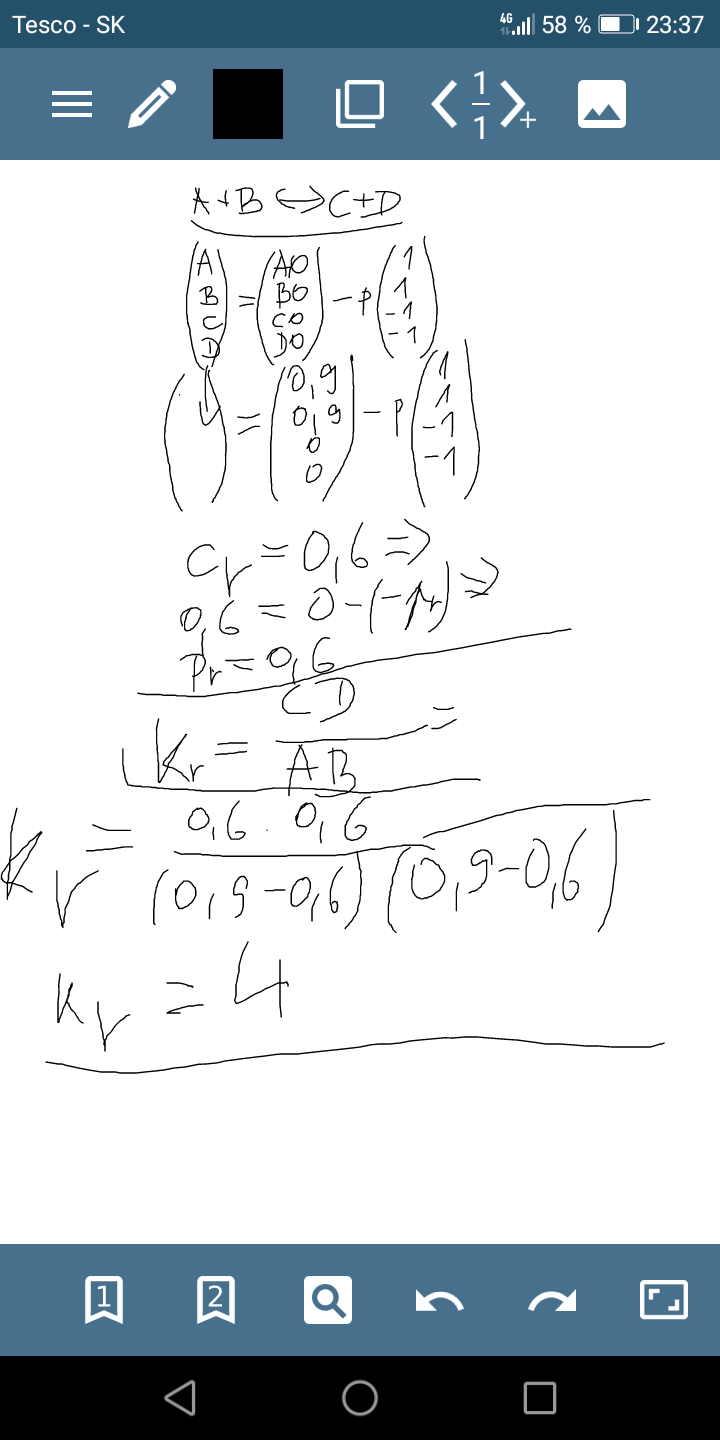 Tesco - SK 4G 58 % 23:37
1
1
+
A+B ⟺ C+D
(A B C D) = (A0 B0 C0 D0) - p (1 1 -1 -1)
( ) = (0,9 0,9 0 0) - p (1 1 -1 -1)
Cr = 0,6 ⇒
0,6 = 0-(-pr) ⇒
pr = 0,6
Kr = CD / AB =
Kr = 0,6 . 0,6 / (0,9-0,6) (0,9-0,6)
Kr = 4
1 2